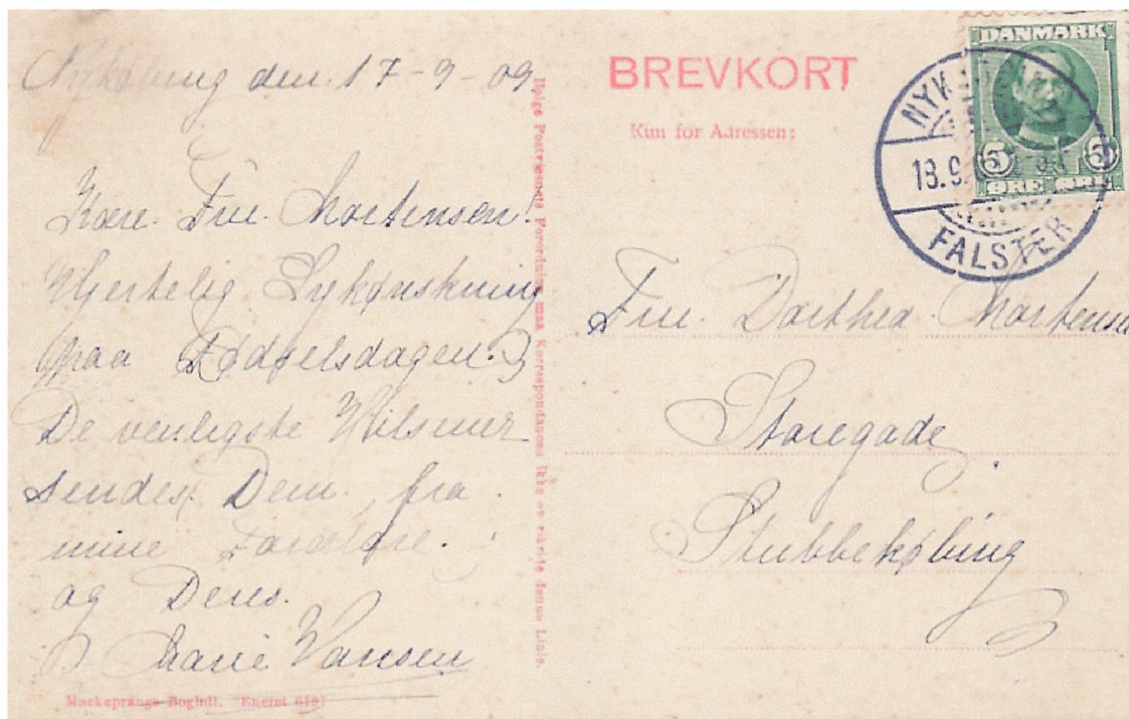 Nykøbing den 17-9-09
Kære Fru Mortensen!
Hjertelig Lykønskning
paa Fødselsdagen.
De venligste Hilsner
sendes Dem fra
mine Forældre.
og Deres.
Marie Hansen
Mackeprangs Boghdl. Eneret
Ifølge Postvæsenets Forordning maa Korrespondancen ikke overskride denne Linie.
BREVKORT
Kun for Adressen:
DANMARK
5 5
ØRE ØRE
NYK
18.9.
FALSTER
Fru. Dorthea Mortensen
Storegade
Stubbekøbing